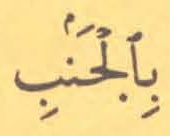 بِٱلْجَنۢبِ